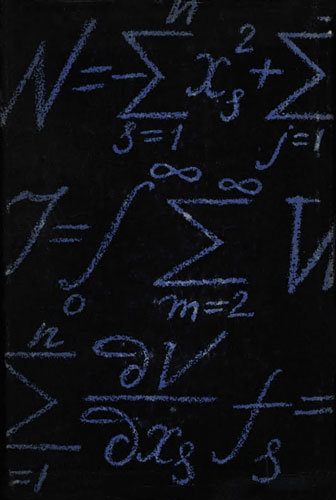 N=-∑ₛ₌₁ⁿ xₛ²+∑ⱼ₌₁
J=∫₀^∞ ∑ₘ₌₂^∞
∑₌₁ⁿ ∂V/∂xₛ fₛ=